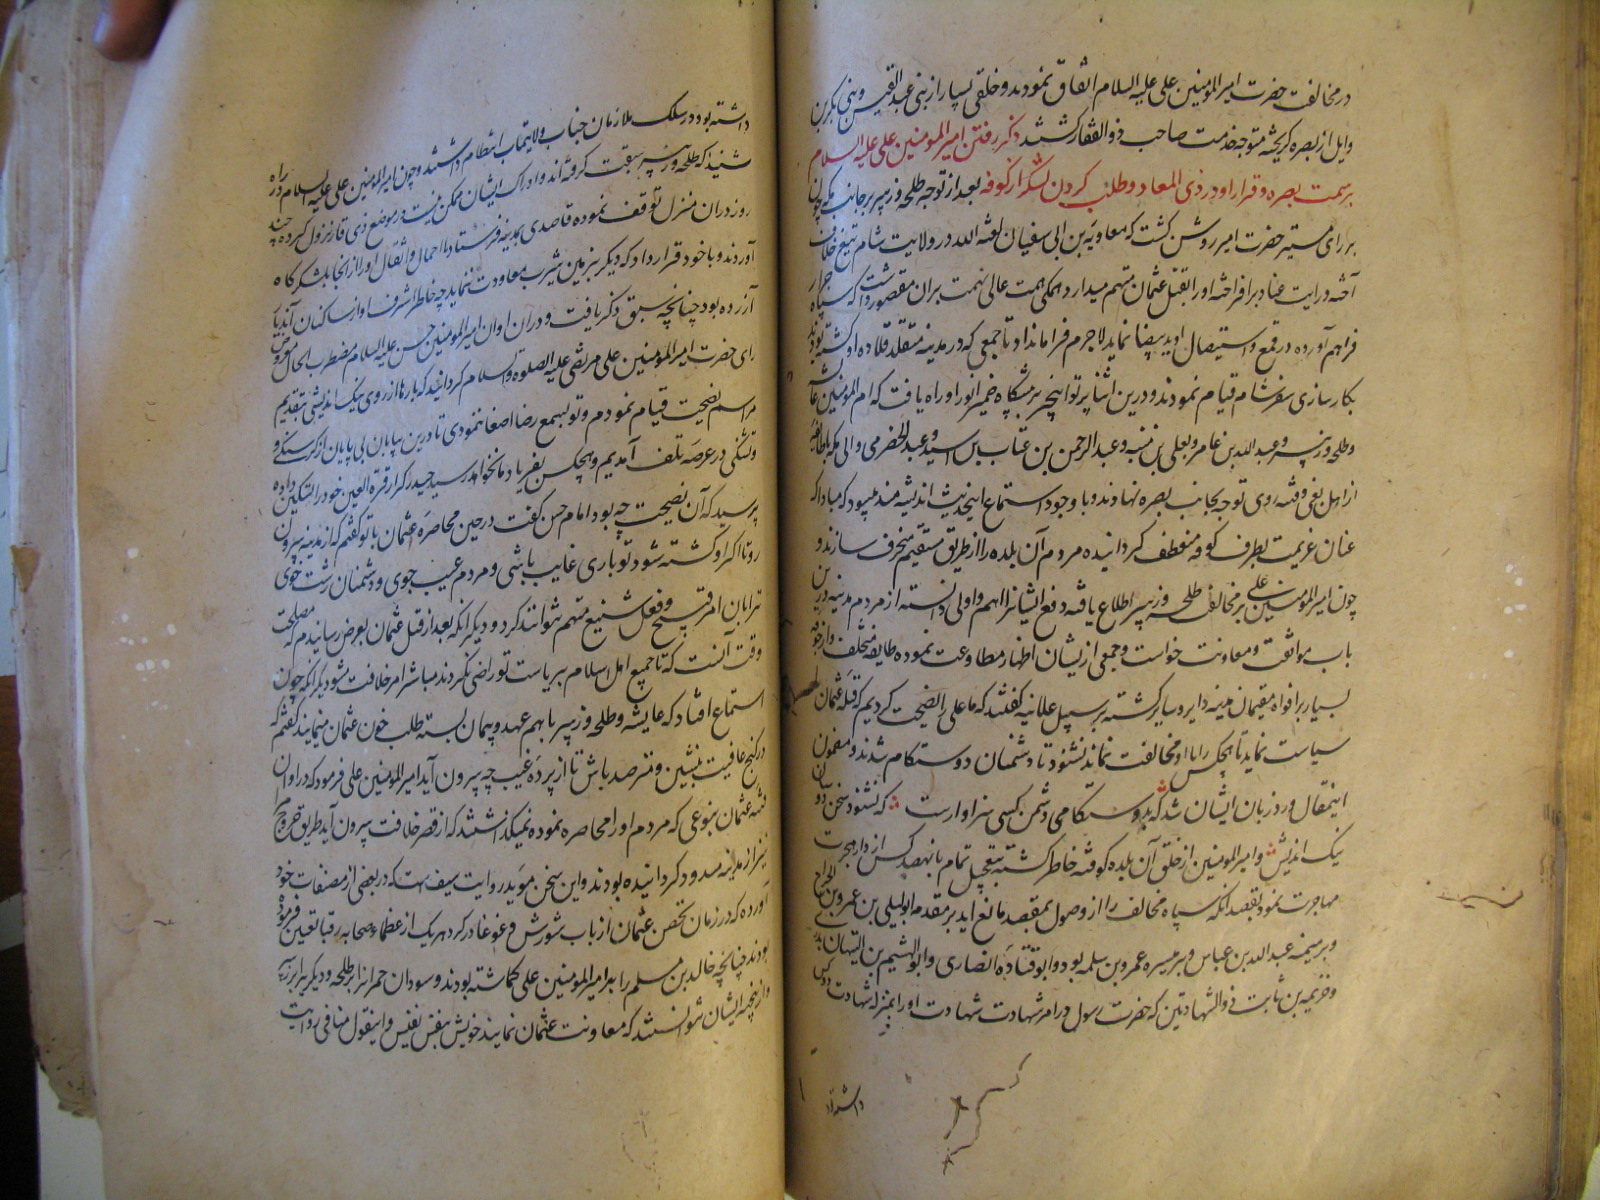 در مخالفت حضرت امیر المومنین علی علیه السلام اتفاق نمودند و خلقی بسیار از بنی عبد القیس و بنی بکر بن
وایل از بصره کریخته متوجه خدمت صاحب ذو الفقار کشتند ذکر رفتن امیر المومنین علی علیه السلام
بر سمت بصره و قرار او در ذی المعاد و طلب کردن لشکر از کوفه بعد از توجه طلحه و زبیر بر جانب مکه چون
بر رای حضرت امیر روشن کشت که معاویه بن ابی سفیان لعنه الله در ولایت شام تیغ خلاف
آخته و رایت عناد بر افراخته او را بقتل عثمان متهم میدارد همکی همت عالی نهمت بران مقصور داشت که سپاه جرار
فراهم آورده در قمع و استیصال او ید بیضا نماید لاجرم فرمان داد تا جمعی که در مدینه متقلد قلاده او کشته بودند
بکار سازی سفر شام قیام نمودند و درین اثنا پرتو اینخبر بر مشکاه ضمیر انور او راه یافت که ام المومنین عایشه
و طلحه و زبیر و عبد الله بن عامر و یعلی بن منبه و عبد الرحمن بن عتاب بن اسید و عبد الحضرمی والی مکه با طایفه
از اهل بغی و فتنه روی توجه بجانب بصره نهادند و با وجود استماع اینحدیث اندیشه مند میبود که مبادا که
عنان عزیمت بطرف کوفه منعطف کردانیده مردم آن بلده را از طریق مستقیم منحرف سازند و
چون امیر المومنین علی بر مخالفت طلحه و زبیر اطلاع یافته دفع ایشانرا اهم و اولی دانسته از مردم مدینه درین
باب موافقت و معاونت خواست و جمعی از یشان اظهار مطاوعت نموده طایفه متخلف
بسیار بر افواه مقیمان مدینه دایر و سایر کشته بر سبیل علانیه کفتند که ما علی را نصیحت کردیم که قتله عثمان
سیاست نماید تا هیچکس را با او مخالفت نماند نشنود تا دشمنان دوستکام شدند و مضمون
اینمقال ورد زبان ایشان شد که بدوستکامی دشمن کسی سزاوارست که نشنود سخن دوستان
نیک اندیش و امیر المومنین از خلق آن بلده کوفته خاطر کشته بتعجیل تمام با نهصد کس از دار هجرت
مهاجرت نمود بقصد انکه سپاه مخالف را از وصول بمقصد مانع اید بر مقدمه ابو لیلی بن عمر و بن الجراح
و بر میمنه عبد الله بن عباس و بر میسره عمرو بن سلمه بود و ابو قتاده انصاری و ابو الهیثم بن التیهان
و خزیمه بن ثابت ذو الشهادتین که حضرت رسول در امر شهادت شهادت او را بمنزله شهادت دو کس
داشته بود
داشته بود در سلک ملازمان جناب ولایتماب انتظام داشتند و چون امیر المومنین علی علیه السلام در راه
شنید که طلحه و زبیر سبقت کرفته اند و ادراک ایشان ممکن نیست در موضع ذی قار نزول کرده چند
روز دران منزل توقف نموده قاصدی بمدینه فرستاد تا احمال و اثقال او را از انجا بلشکر کاه
آوردند و با خود قرار داد که دیکر بزمین یثرب معاودت ننماید چه خاطر اشرف او از ساکنان آندیار
آزرده بود چنانچه سبق ذکر یافت و دران اوان امیر المومنین حسن علیه السلام مضطرب الحال معروض
رای حضرت امیر المومنین علی مرتضی علیه الصلوه والسلام کردانید که بارها از روی نیک اندیشی بتقدیم
مراسم نصیحت قیام نمودم و تو بسمع رضا اصغا ننمودی تا درین بیابان بی پایان از کرسنکی و
و تشنکی در عرصه تلف آمدیم و هیچکس بفریاد ما نخواهد رسید حیدر کرار قره العین خود را تسکین داده
پرسید که آن نصیحت چه بود امام حسن کفت در حین محاصره عثمان با تو کفتم که از مدینه بیرون
رو تا اکر او کشته شود تو باری غایب باشی و مردم عیب جوی و دشمنان زشت خوی
ترا بان امر قبیح و فعل شنیع متهم نتوانند کرد و دیکر انکه بعد از قتل عثمان بعرض رسانیدم که مصلحت
وقت آنست که تا جمیع اهل اسلام بریاست تو راضی نکردند مباشر امر خلافت نشوی دیکر آنکه چون
استماع افتاد که عایشه و طلحه و زبیر با هم عهد و پیمان بسته طلب خون عثمان مینمایند کفتم که
در کنج عافیت بنشین و مترصد باش تا از پرده غیب چه بیرون آید امیر المومنین علی فرمود که در اوان
فتنه عثمان بنوعی که مردم او را محاصره نموده نمیکذاشتند که از قصر خلافت بیرون آید طریق خروج
نیز از مدینه مسدود کردانیده بودند و این سخن موید روایت سیف است که در بعضی از مصنفات خود
آورده که در زمان تحصن عثمان ارباب شورش و غوغا در کرد هر یک از عظماء صحابه رقبا تعیین فرموده
بودند چنانچه خالد بن مسلم را بر امیر المومنین علی کماشته بودند و سودان حمرانرا بر طلحه و دیکری را بر زبیر
و ازینجهه ایشان نتوانستند که معاونت عثمان نمایند خویش بنفس نفیس و اینقول منافی روایت